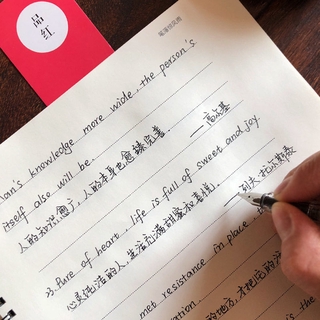 品红
man's knowledge more wide, the person's
itself also will be.
人的知识愈广，人的本身也愈臻完善. ——高尔基
23. Pure of heart, life is full of sweet and joy.
心灵纯洁的人,生活充满甜蜜和喜悦. ——列夫·托尔斯泰
met resistance in place,
的地方,才把
is the